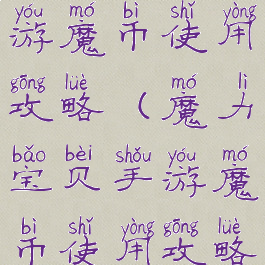 yóu mó bì shǐ yòng
游魔币使用
gōng lüè mó lì
攻略(魔力
bǎo bèi shǒu yóu mó
宝贝手游魔
bì shǐ yòng gōng lüè
币使用攻略